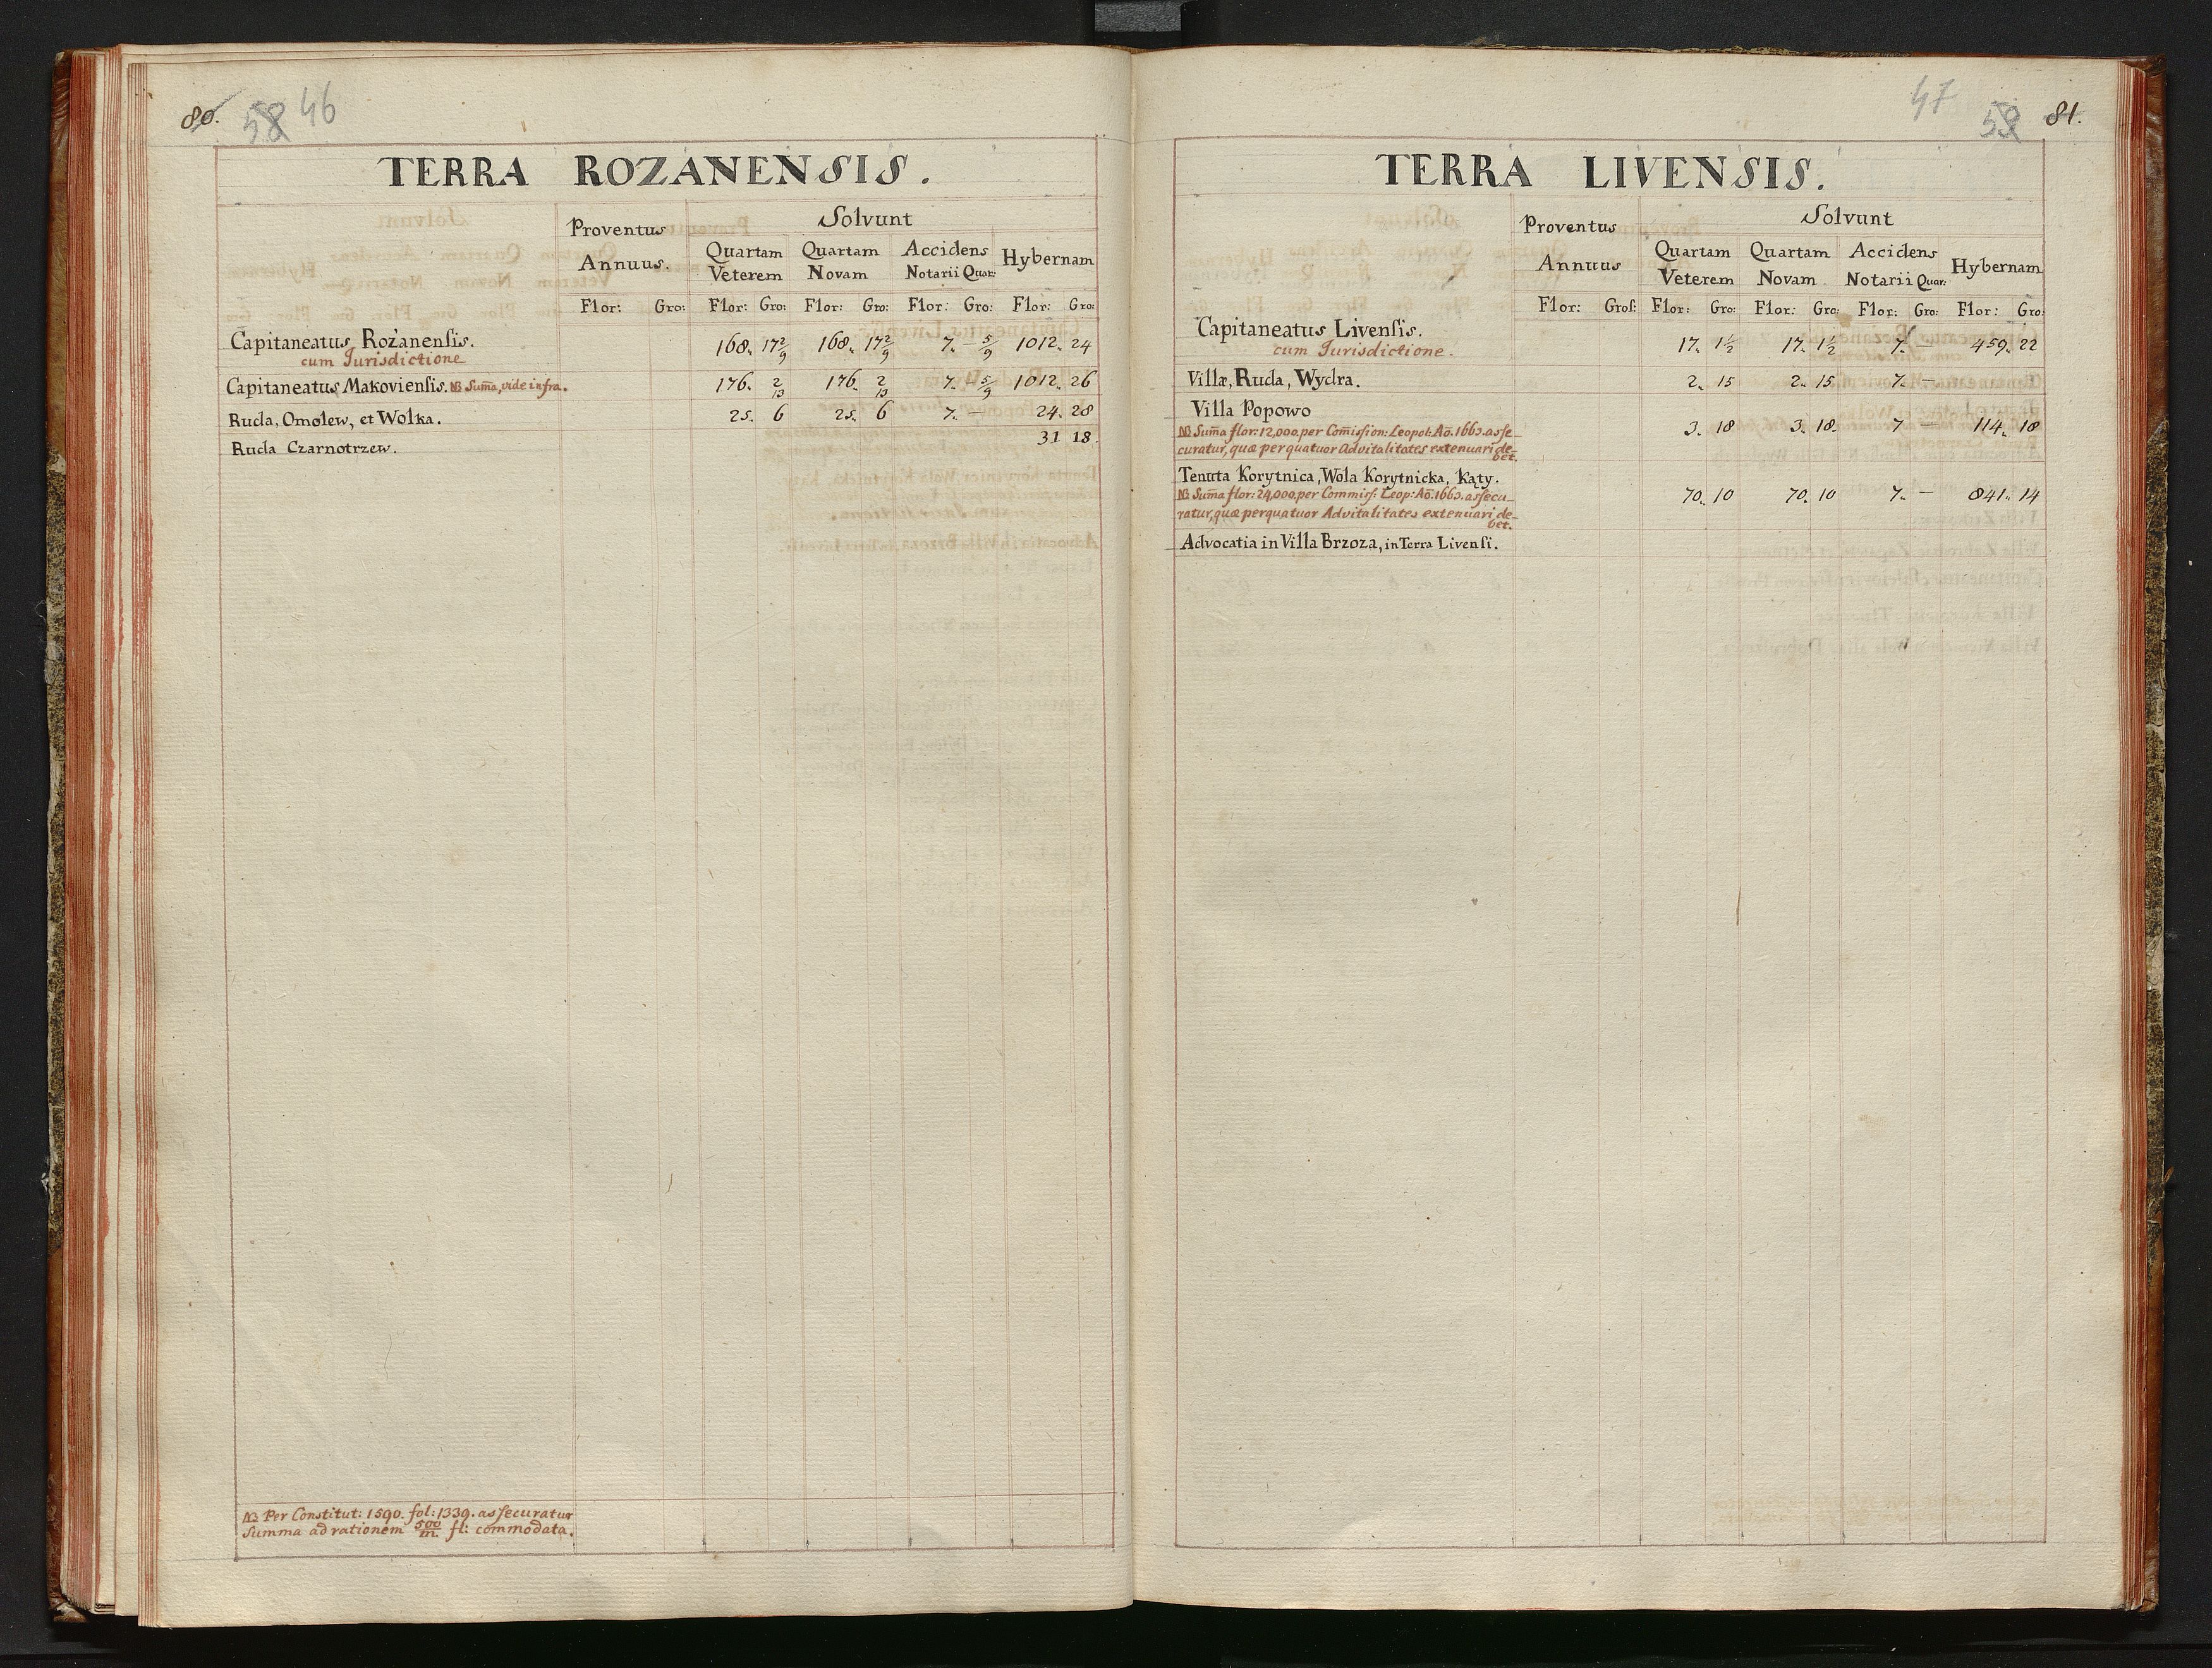 80. 58 46
TERRA ROZANENSIS.
Proventus Annuus. Solvunt
Quartam Veterem Quartam Novam Accidens Notarii Quar: Hybernam
Flor: Gro: Flor: Gro: Flor: Gro: Flor: Gro: Flor: Gro:
Capitaneatus Rożanensis. 168. 17 2/9 168. 17 2/9 7. – 5/9 1012. 24
cum Jurisdictione
Capitaneatus Makoviensis. NB Suma, vide infra. 176. 2/13 176. 2/13 7. 4 5/9 1012. 26
Ruda, Omolew, et Wolka. 25. 6 25. 6 7. – 24. 28
Ruda Czarnotrzew. 31 18.
NB Per Constitut: 1590. fol: 1339. assecuratur
Summa ad rationem 500/m. fl: commodata.
47 59 81.
TERRA LIVENSIS.
Proventus Annuus Solvunt
Quartam Veterem Quartam Novam Accidens Notarii Quar: Hybernam
Flor: Gros: Flor: Gro: Flor: Gro: Flor: Gro: Flor: Gro:
Capitaneatus Livensis. 17. 1½ 17. 1½ 7. – 459. 22
cum Jurisdictione.
Villæ, Ruda, Wydra. 2. 15 2. 15 7. –
Villa Popowo 3. 18 3. 18. 7 – 114. 18
NB Suma flor: 12,000. per Comission: Leopol: Ao. 1663. asse-
curatur, quæ per quatuor Advitalitates extenuari de-
bet.
Tenuta Korytnica, Wola Korytnicka, Kąty. 70. 10 70. 10 7. – 841. 14
NB Suma flor: 24,000. per Commiss: Leop: Ao. 1663. assecu-
ratur, quæ per quatuor Advitalitates extenuari de-
bet.
Advocatia in Villa Brzoza, in Terra Livensi.